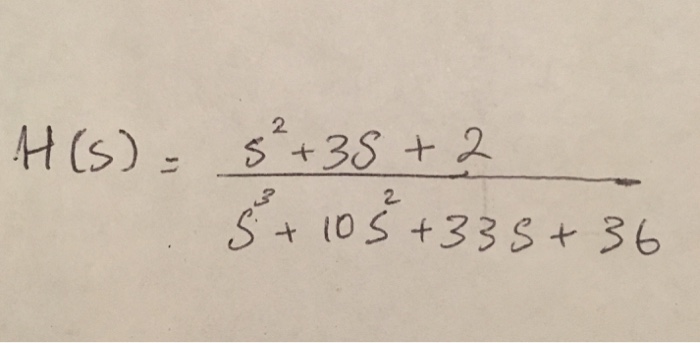 H(s) = s²+3s+2
s³+10s²+33s+36